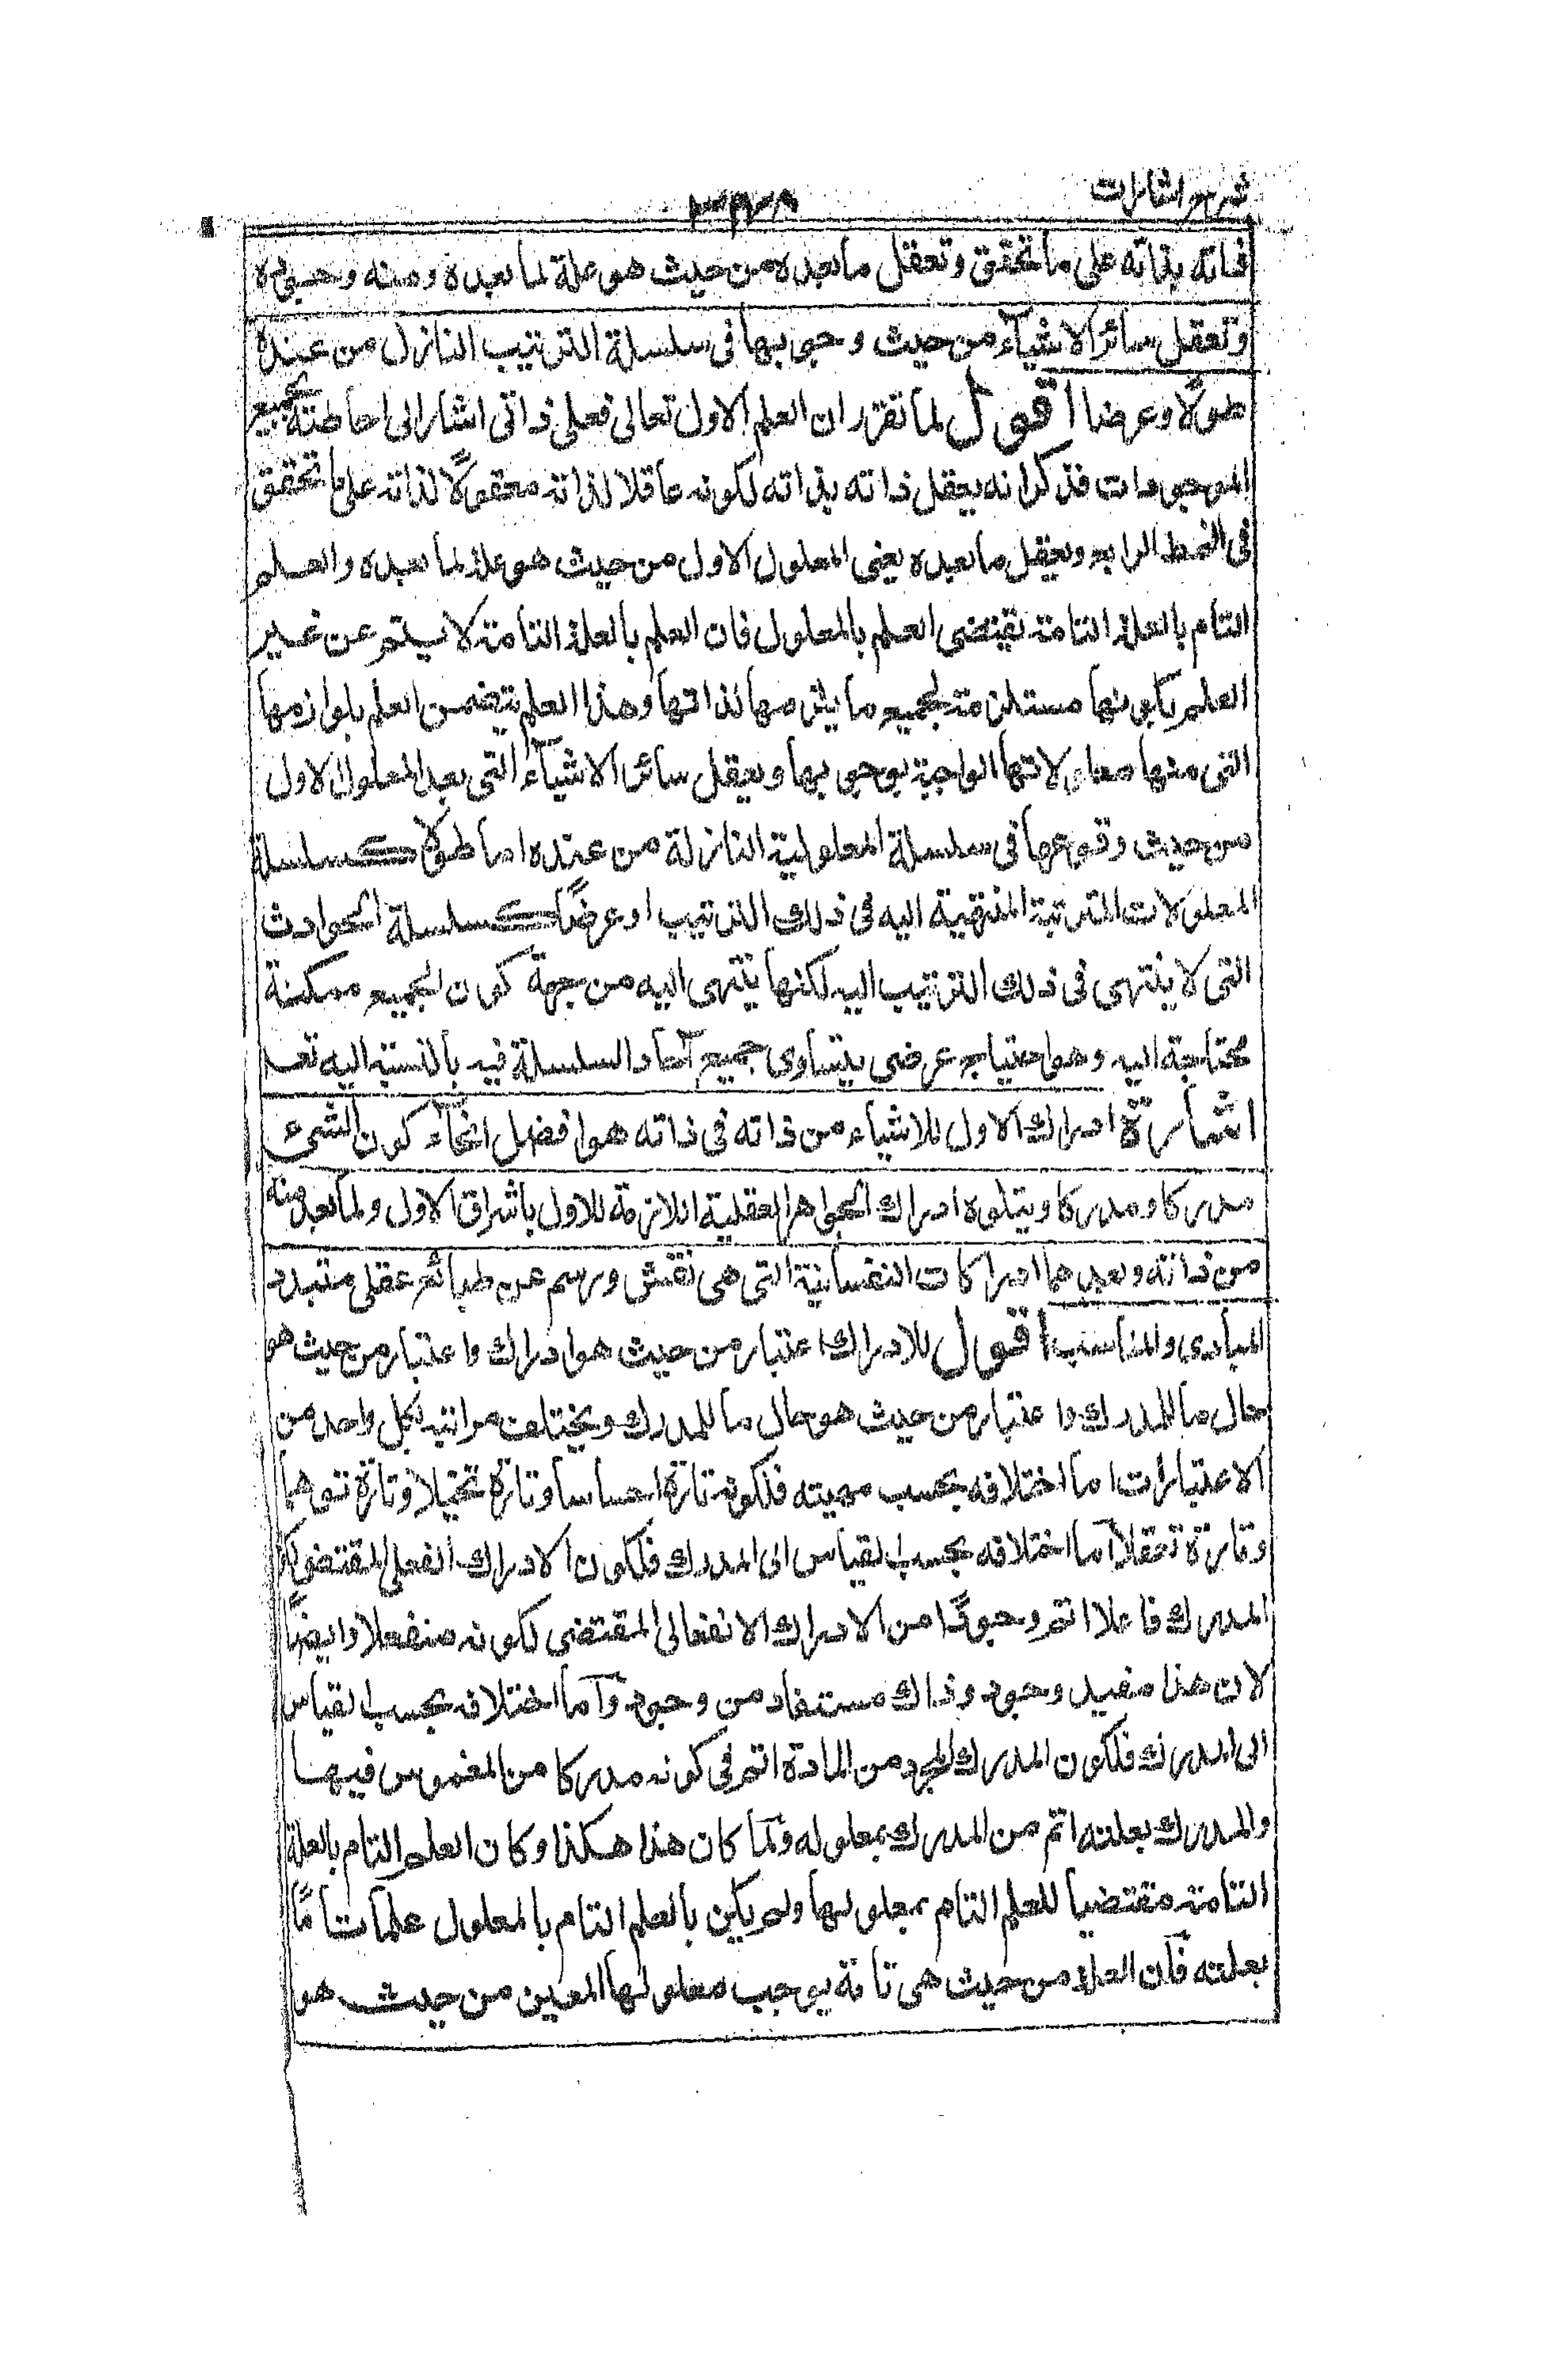 شرح اشارات
٣٣٨
ذاته بذاته على ما تحقق وتعقل ما بعده من حيث هو علة لما بعده ومنه وجوده
وتعقل سائر الاشياء من حيث وجوبها فى سلسلة الترتيب النازل من عنده
طولا وعرضا اقول لما تقرر ان العلم الاول تعالى فعلى ذاتى اشار الى احاطته بجميع
الموجودات فذكر انه يعقل ذاته بذاته لكونه عاقلا لذاته معقولا لذاته على ما تحقق
فى النمط الرابع ويعقل ما بعده يعنى المعلول الاول من حيث هو علة لما بعده والعلم
التام بالعلة التامة يقتضى العلم بالمعلول فان العلم بالعلة التامة لا يتم عن غير
العلم بكونها مستلزمة لجميع ما يلزمها لذاتها وهذا العلم يتضمن العلم بلوازمها
التى منها معلولاتها الواجبة بوجوبها ويعقل سائر الاشياء التى بعد المعلول الاول
من حيث وقوعها فى سلسلة المعلولية النازلة من عنده اما طولا كسلسلة
المعلولات المترتبة المنتهية اليه فى ذلك الترتيب او عرضا كسلسلة الحوادث
التى لا ينتهى فى ذلك الترتيب اليه لكنها ينتهى اليه من جهة كون الجميع ممكنة
محتاجة اليه وهو احتياج عرضى يتساوى جميع آحاد السلسلة فيه بالنسبة اليه تعـ
اشارة ادراك الاول للاشياء من ذاته فى ذاته هو افضل انحاء كون الشىء
مدركا ومدركا ويتلوه ادراك الجواهر العقلية اللازمة للاول باشراق الاول ولما بعده منه
من ذاته وبعدهما ادراكات النفسانية التى هى نقش ورسم عن طبائع عقلى متبدد
المبادى والمناسب اقول للادراك اعتبار من حيث هو ادراك واعتبار من حيث هو
حال ما للمدرك واعتبار من حيث هو حال ما للمدرك ويختلف مراتبه لكل واحد من
الاعتبارات اما اختلافه بحسب مهيته فلكونه تارة احساسا وتارة تخيلا وتارة توهما
وتارة تعقلا اما اختلافه بحسب القياس الى المدرك فلكون الادراك الفعلى المقتضى لكون
المدرك فاعلا اتم وجودا من الادراك الانفعالى المقتضى لكونه منفعلا وايضا
لان هذا مفيد وجود وذاك مستفاد من وجود واما اختلافه بحسب القياس
الى المدرك فلكون المدرك المجرد من المادة اتم فى كونه مدركا من المغموس فيها
والمدرك بعلته اتم من المدرك بمعلوله ولما كان هذا هكذا وكان العلم التام بالعلة
التامة مقتضيا للعلم التام بمعلولها ولم يكن بالعلم التام بالمعلول علما تاما
بعلته فان العلة من حيث هى تامة يوجب معلولها المعين من حيث هو